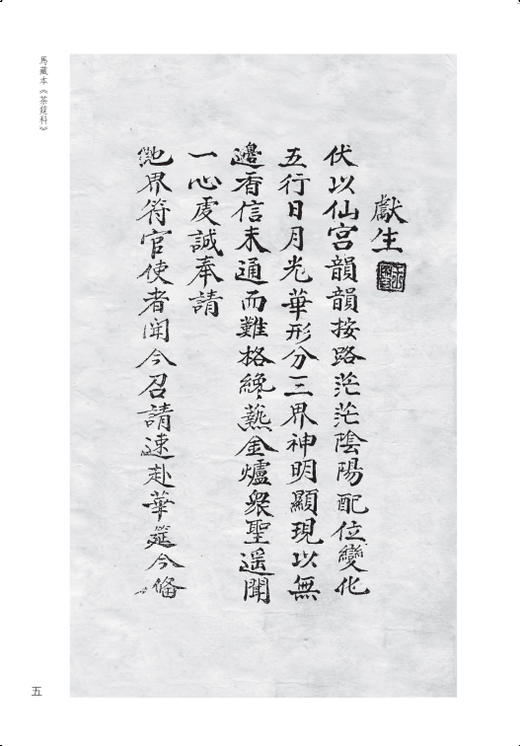 馬藏本《茶筵科》
獻生
伏以仙宮韻韻按路茫茫陰陽配位變化
五行日月光華形分三界神明顯現以無
邊香信未通而難格纔爇金爐衆聖遥聞
一心虔誠奉請
界符官使者聞今召請速赴華筵今俻
五